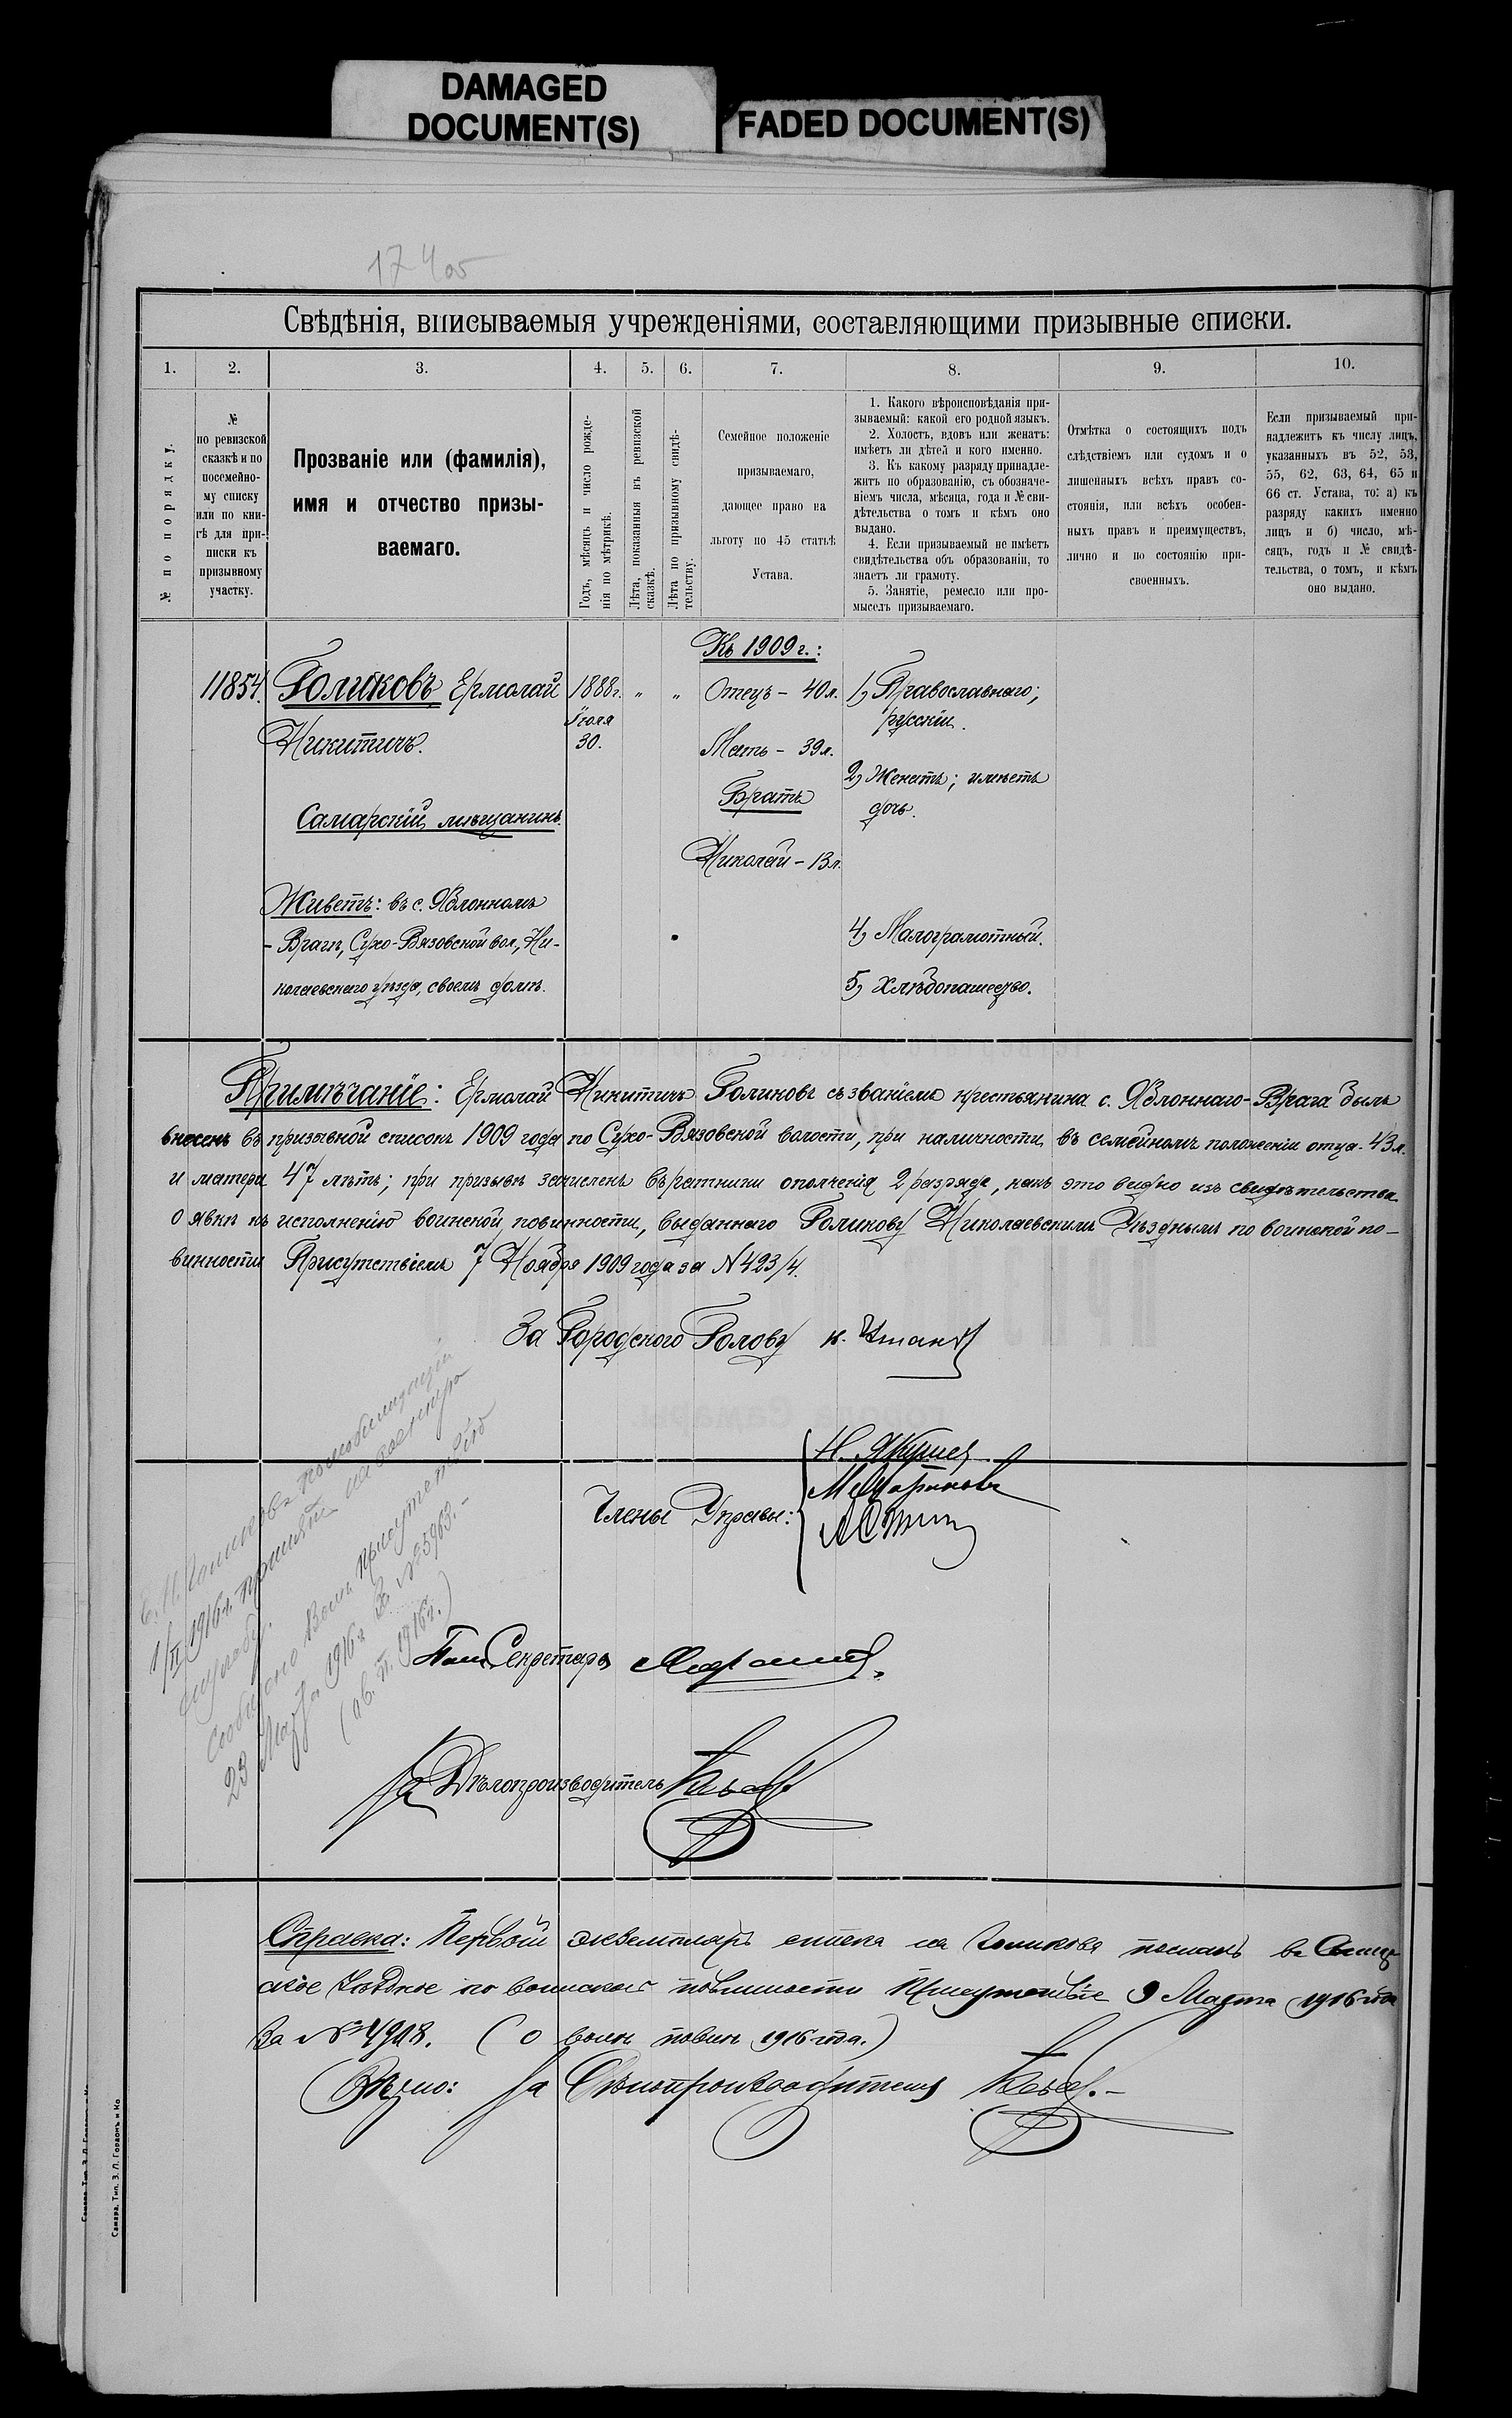 DAMAGED
DOCUMENT(S)
FADED DOCUMENT(S)
17405
Свѣдѣнія, вписываемыя учрежденіями, составляющими призывные списки.
1. 2. 3. 4. 5. 6. 7. 8. 9. 10.
№ по порядку.
№
по ревизской
сказкѣ и по
посемейно-
му списку
или по кни-
гѣ для при-
писки къ
призывному
участку.
Прозваніе или (фамилія),
имя и отчество призы-
ваемаго.
Годъ, мѣсяцъ и число рожде-
нія по метрикѣ.
Лѣта, показанныя въ ревизской
сказкѣ.
Лѣта по призывному свидѣ-
тельству.
Семейное положеніе
призываемаго,
дающее право на
льготу по 45 статьѣ
Устава.
1. Какого вѣроисповѣданія при-
зываемый: какой его родной языкъ.
2. Холостъ, вдовъ или женатъ:
имѣетъ ли дѣтей и кого именно.
3. Къ какому разряду принадле-
житъ по образованію, съ обозначе-
ніемъ числа, мѣсяца, года и № сви-
дѣтельства о томъ и кѣмъ оно
выдано.
4. Если призываемый не имѣетъ
свидѣтельства объ образованіи, то
знаетъ ли грамоту.
5. Занятіе, ремесло или про-
мыселъ призываемаго.
Отмѣтка о состоящихъ подъ
слѣдствіемъ или судомъ и о
лишенныхъ всѣхъ правъ со-
стоянія, или всѣхъ особен-
ныхъ правъ и преимуществъ,
лично и по состоянію при-
своенныхъ.
Если призываемый при-
надлежитъ къ числу лицъ,
указанныхъ въ 52, 53,
55, 62, 63, 64, 65 и
66 ст. Устава, то: а) къ
разряду какихъ именно
лицъ и б) число, мѣ-
сяцъ, годъ и № свидѣ-
тельства, о томъ, и кѣмъ
оно выдано.
11854. Голиковъ Ермолай
Никитичъ.
Самарскій мѣщанинъ.
Живетъ: въ с. Яблонномъ
- Врагѣ, Сухо-Вязовской вол., Ни-
колаевскаго уѣзда, своемъ домѣ.
1888г. " "
Іюля
30.
Къ 1909 г.:
Отецъ - 40 л.
Мать - 39 л.
Братъ
Николай - 13 л.
1) Православнаго;
русскій.
2) Женатъ; имѣетъ
дочь.
4) Малограмотный.
5) Хлѣбопашество.
Примѣчаніе: Ермолай Никитичъ Голиковъ съ званіемъ крестьянина с. Яблоннаго-Врага былъ
внесенъ въ призывной списокъ 1909 года по Сухо-Вязовской волости, при наличности въ семейномъ положеніи отца - 43 л.
и матери 47 лѣтъ; при призывѣ зачисленъ въ ратники ополченія 2 разряда, какъ это видно изъ свидѣтельства
о явкѣ къ исполненію воинской повинности, выданнаго Голикову Николаевскимъ Уѣзднымъ по воинской по-
винности Присутствіемъ 7 Ноября 1909 года за № 423/4.
За Городского Голову
Члены Управы:
Секретарь
За Дѣлопроизводитель
Е. Н. Голиковъ по мобилизаціи
1/II 1916 г. принятъ на военную
службу.
Сообщено Воин. Присутствію
23 Марта 1916 г. за № 5963.-
Справка: Первый экземпляръ списка на Голикова посланъ въ
ское Уѣздное по воинской повинности Присутствіе 9 Марта 1916 года
За № 4908. (о воин. повин. 1916 года.)
Вѣрно: За Дѣлопроизводителя
Самара. Тип. З. Л. Гордонъ и Ко